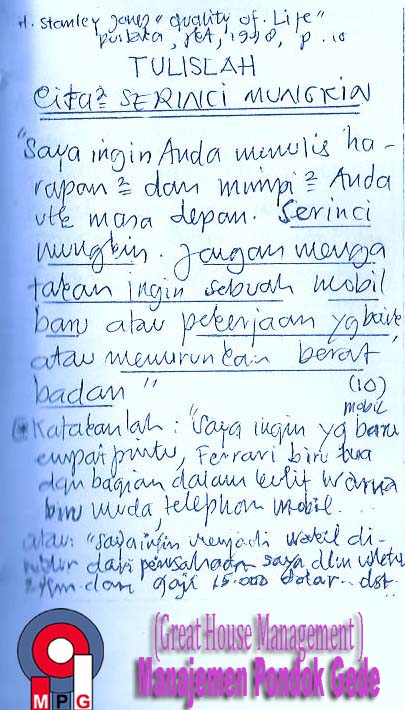 H. Stanley Jones "Quality of Life"
pustaka, 1998, p. 10
TULISLAH
Cita² SERINCI MUNGKIN
"Saya ingin Anda menulis ha-
rapan² dan mimpi² Anda
utk masa depan. Serinci
mungkin. Jangan menga
takan ingin sebuah mobil
baru atau pekerjaan yg baik
atau menurunkan berat
badan"
(10)
* Katakanlah: "Saya ingin mobil yg baru
empat pintu, Ferrari biru tua
dgn bagian dalam kulit warna
biru muda, telephon mobil.
atau: "saya ingin menjadi wakil di-
rektur dari perusahaan saya dlm waktu
dan gaji 15.000 dolar.. dst.
(Great House Management)
Manajemen Pondok Gede
MPG